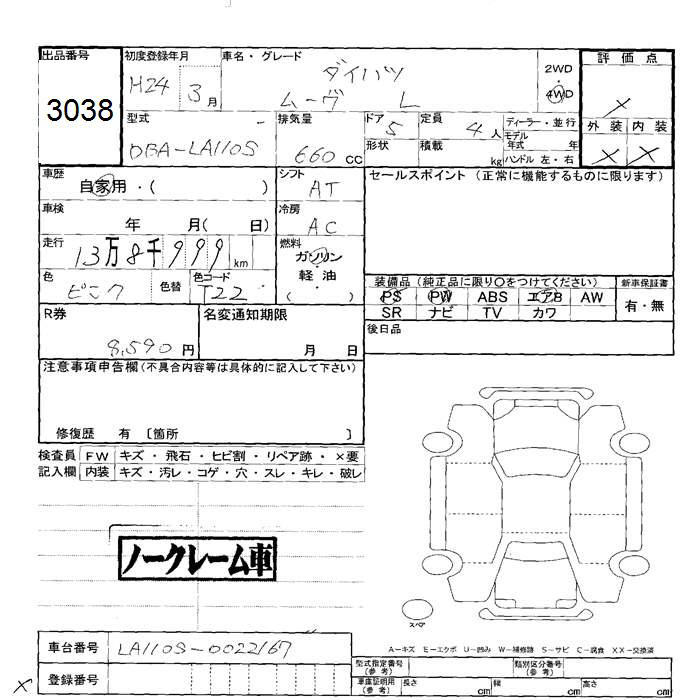 出品番号 初度登録年月 車名・グレード 評価点
3038 H24 3月 ダイハツ 2WD・4WD
ムーヴ L ×
型式 排気量 ドア 定員 ディーラー・並行 外装 内装
DBA-LA110S 660 CC 5 4人 モデル年式 年 × ×
形状 積載 kg ハンドル 左・右
車歴 シフト セールスポイント (正常に機能するものに限ります)
自家用・( ) AT
車検 冷房
年 月( 日) AC
走行 燃料
13万8千999km ガソリン・軽油
色 色替 色コード ( )
ピンク T22
装備品 (純正品に限り○をつけてください) 新車保証書
PS PW ABS エアB AW 有・無
SR ナビ TV カワ
R券 名変通知期限 後日品
8,590円 月 日
注意事項申告欄(不具合内容等は具体的に記入して下さい)
修復歴 有 〔箇所 〕
検査員 FW キズ・飛石・ヒビ割・リペア跡・×要
記入欄 内装 キズ・汚レ・コゲ・穴・スレ・キレ・破レ
ノークレーム車
スペア
A-キズ E-エクボ U-凹み W-補修跡 S-サビ C-腐食 XX-交換済
車台番号 LA110S-0022167
型式指定番号(参考) 類別区分番号(参考)
登録番号
車庫証明用(参考) 長さ cm 幅 cm 高さ cm
×